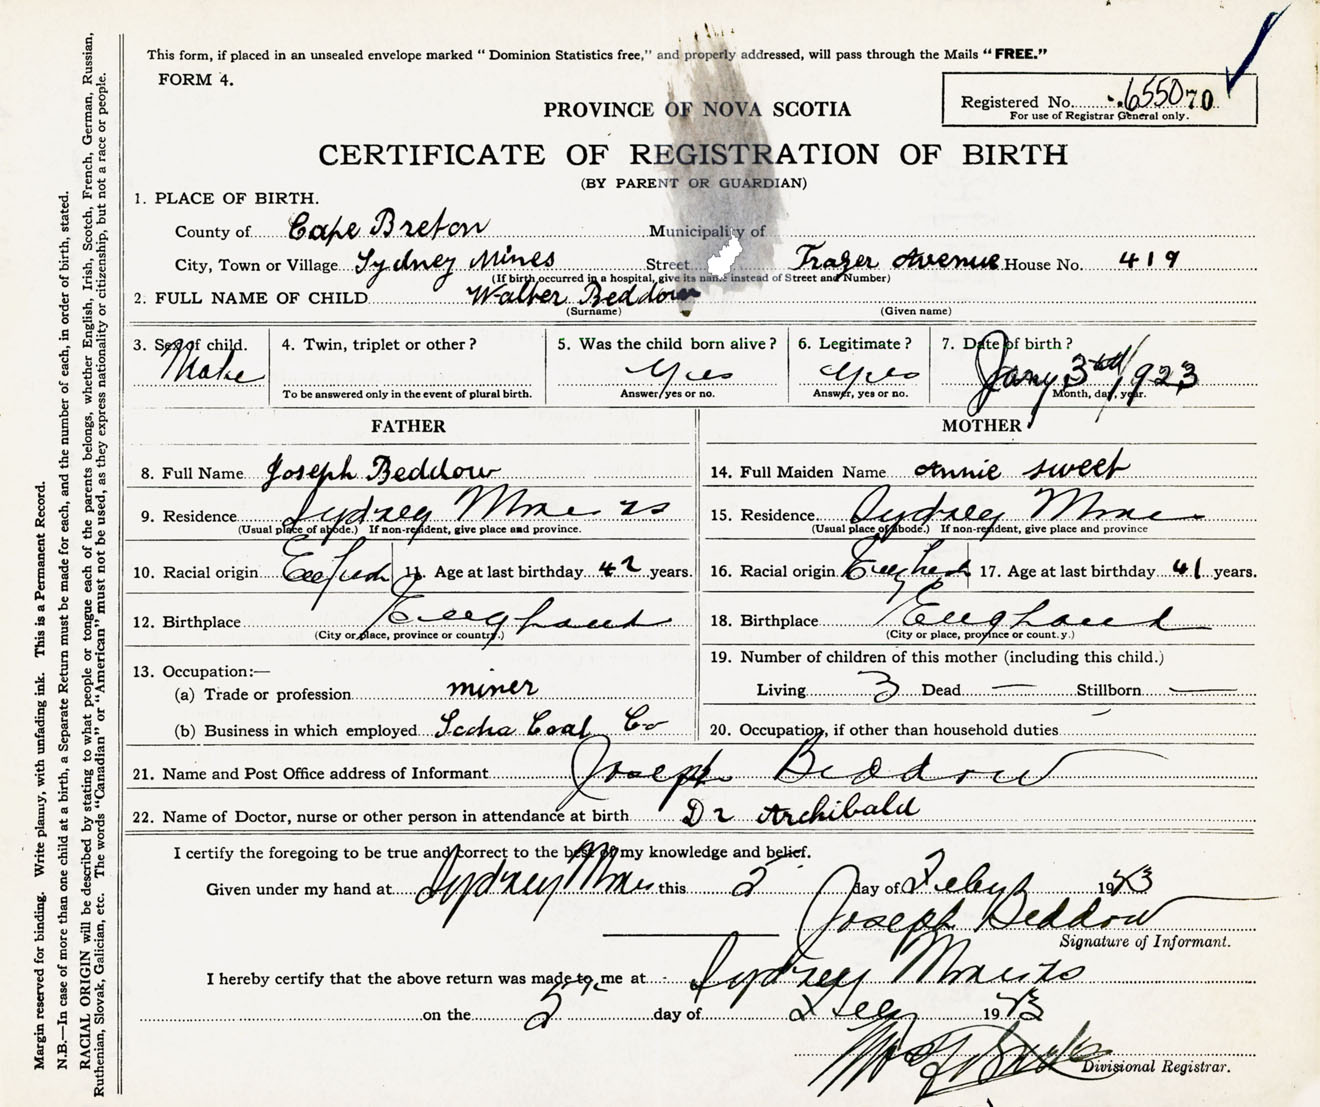 This form, if placed in an unsealed envelope marked "Dominion Statistics free," and properly addressed, will pass through the Mails "FREE."
FORM 4.
Registered No. 655070
For use of Registrar General only.
PROVINCE OF NOVA SCOTIA
CERTIFICATE OF REGISTRATION OF BIRTH
(BY PARENT OR GUARDIAN)
1. PLACE OF BIRTH.
County of Cape Breton Municipality of
City, Town or Village Sydney Mines Street Frazer Avenue House No. 419
(If birth occurred in a hospital, give its name instead of Street and Number)
2. FULL NAME OF CHILD Walter Beddow
(Surname) (Given name)
3. Sex of child. 4. Twin, triplet or other? 5. Was the child born alive? 6. Legitimate? 7. Date of birth?
Male Yes Yes Jany 3rd 1923
To be answered only in the event of plural birth. Answer, yes or no. Answer, yes or no. Month, day, year.
FATHER
8. Full Name Joseph Beddow
9. Residence Sydney Mines
(Usual place of abode.) If non-resident, give place and province.
10. Racial origin English 11. Age at last birthday 42 years.
12. Birthplace England
(City or place, province or country.)
13. Occupation:—
(a) Trade or profession miner
(b) Business in which employed Scotia Coal Co
MOTHER
14. Full Maiden Name Annie Sweet
15. Residence Sydney Mines
(Usual place of abode.) If non-resident, give place and province
16. Racial origin English 17. Age at last birthday 41 years.
18. Birthplace England
(City or place, province or count.y.)
19. Number of children of this mother (including this child.)
Living 3 Dead — Stillborn —
20. Occupation, if other than household duties —
21. Name and Post Office address of Informant Joseph Beddow
22. Name of Doctor, nurse or other person in attendance at birth Dr Archibald
I certify the foregoing to be true and correct to the best of my knowledge and belief.
Given under my hand at Sydney Mines this 2 day of Feby 1923
Joseph Beddow
Signature of Informant.
I hereby certify that the above return was made to me at Sydney Mines
on the 2 day of Feby 1923
Divisional Registrar.
Margin reserved for binding. Write plainly, with unfading ink. This is a Permanent Record.
N.B.—In case of more than one child at a birth, a Separate Return must be made for each, and the number of each, in order of birth, stated.
RACIAL ORIGIN will be described by stating to what people or tongue each of the parents belongs, whether English, Irish, Scotch, French, German, Russian,
Ruthenian, Slovak, Galician, etc. The words "Canadian" or "American" must not be used, as they express nationality or citizenship, but not a race or people.